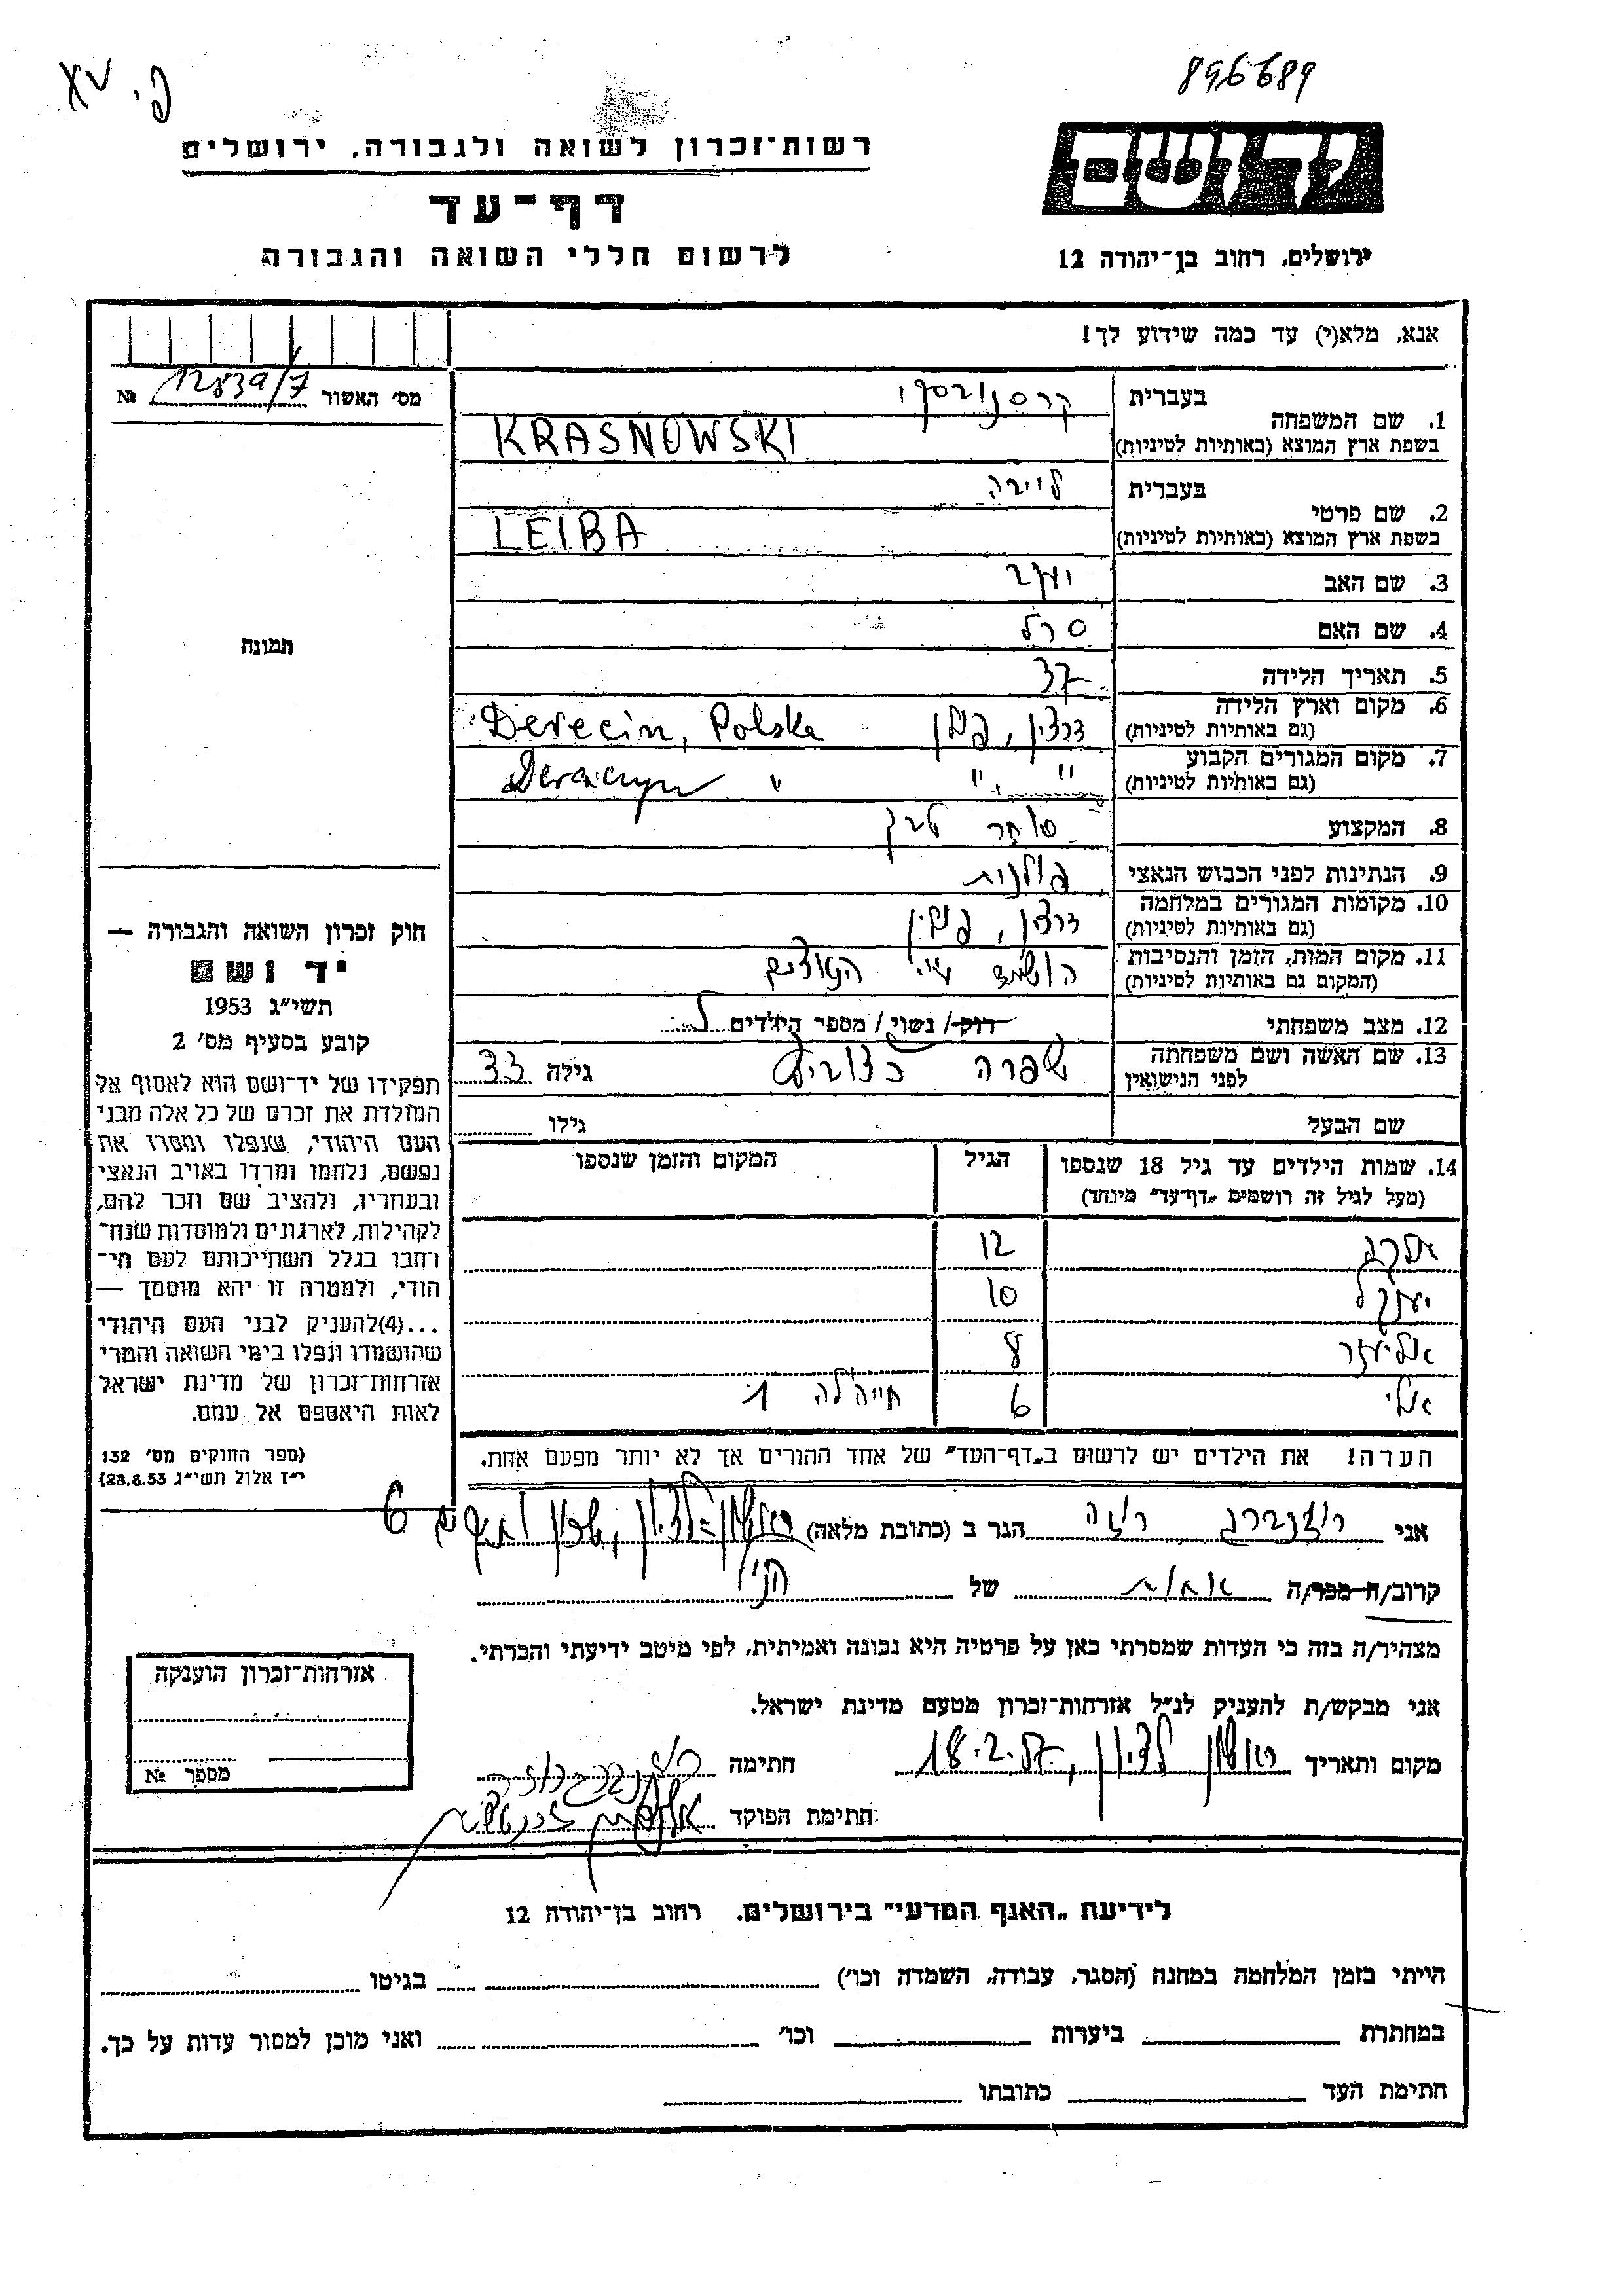 896689
פ. XV
יד ושם
רשות־זכרון לשואה ולגבורה, ירושלים
דף־עד
לרשום חללי השואה והגבורה
ירושלים, רחוב בן־יהודה 12
אנא, מלא(י) עד כמה שידוע לך!
מס׳ האשור 12839/7 №
1. שם המשפחה
בעברית קרסנובסקי
בשפת ארץ המוצא (באותיות לטיניות) KRASNOWSKI
2. שם פרטי
בעברית לייבה
בשפת ארץ המוצא (באותיות לטיניות) LEIBA
3. שם האב יעקב
4. שם האם סרל
5. תאריך הלידה 37
6. מקום וארץ הלידה
(גם באותיות לטיניות) דרצין, פולין Derecin, Polska
7. מקום המגורים הקבוע
(גם באותיות לטיניות) " " Dereczyn "
8. המקצוע סוחר
9. הנתינות לפני הכבוש הנאצי פולנית
10. מקומות המגורים במלחמה
(גם באותיות לטיניות) דרצין, פולין
11. מקום המות, הזמן והנסיבות
(המקום גם באותיות לטיניות) הושמד ע"י הנאצים
12. מצב משפחתי רווק / נשוי / מספר הילדים
13. שם האשה ושם משפחתה
לפני הנישואין שפרה גילה 33
שם הבעל גילו
14. שמות הילדים עד גיל 18 שנספו הגיל המקום והזמן שנספו
(מעל לגיל זה רושמים „דף־עד" מיוחד)
12
יענקל 10
אליעזר 8
אלי 6 חייה'לה 1
הערה! את הילדים יש לרשום ב„דף־העד" של אחד ההורים אך לא יותר מפעם אחת.
תמונה
חוק זכרון השואה והגבורה —
יד ושם
תשי״ג 1953
קובע בסעיף מס׳ 2
תפקידו של יד־ושם הוא לאסוף אל
המולדת את זכרם של כל אלה מבני
העם היהודי, שנפלו ומסרו את
נפשם, נלחמו ומרדו באויב הנאצי
ובעוזריו, ולהציב שם וזכר להם,
לקהילות, לארגונים ולמוסדות שנח־
רחבו בגלל השתייכותם לעם הי־
הודי, ולמטרה זו יהא מוסמך —
...(4)להעניק לבני העם היהודי
שהושמדו ונפלו בימי השואה והמרי
אזרחות־זכרון של מדינת ישראל
לאות היאספם אל עמם.
(ספר החוקים מס׳ 132
י״ז אלול תשי״ג 28.8.53)
אני רוזנברג רוזה הגר ב (כתובת מלאה) ראשון-לציון, 6
קרוב/ה מכר/ה אחות של הנ"ל
מצהיר/ה בזה כי העדות שמסרתי כאן על פרטיה היא נכונה ואמיתית, לפי מיטב ידיעתי והכרתי.
אני מבקש/ת להעניק לנ״ל אזרחות־זכרון מטעם מדינת ישראל.
מקום ותאריך ראשון לציון, 18.2.57 חתימה רוזנברג רוזה
חתימת הפוקד
אזרחות־זכרון הוענקה
מספר №
לידיעת „האגף המדעי" בירושלים. רחוב בן־יהודה 12
הייתי בזמן המלחמה במחנה (הסגר, עבודה, השמדה וכו׳) בגיטו
במחתרת ביערות וכו׳ ואני מוכן למסור עדות על כך.
חתימת העד כתובתו